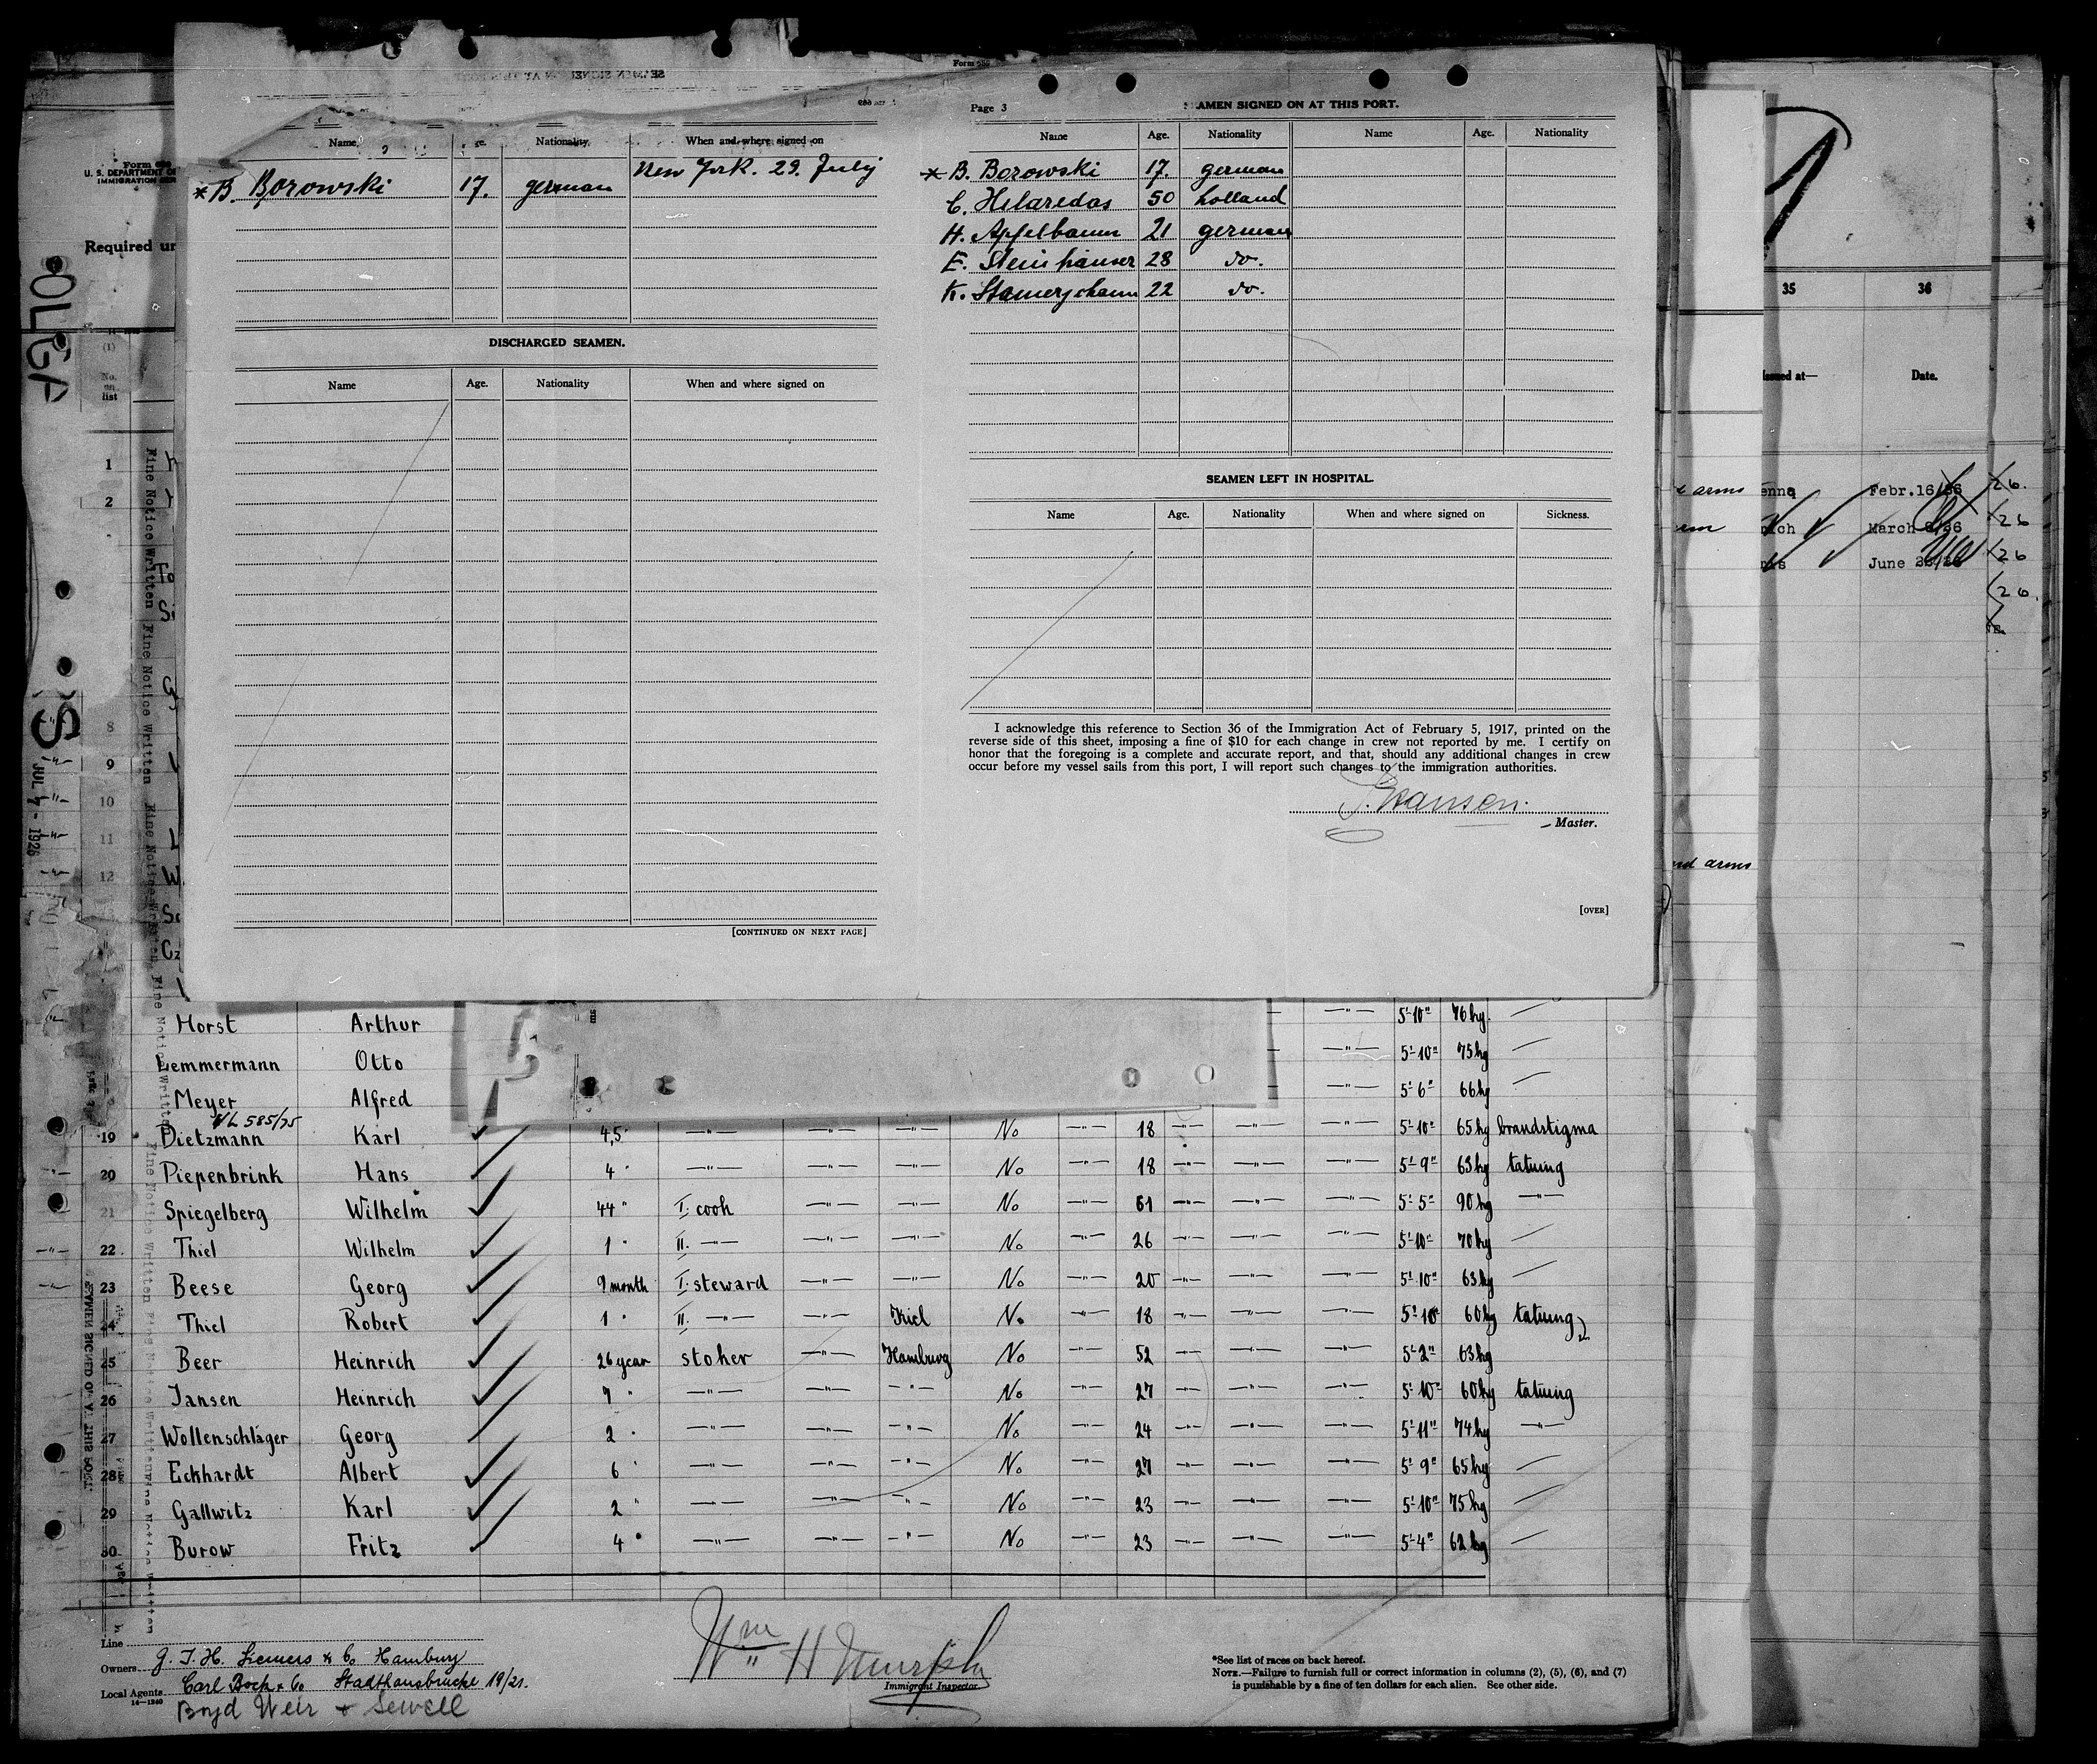 Form 689
Page 3
SEAMEN SIGNED ON AT THIS PORT.
Name Age. Nationality When and where signed on
* B. Borowski 17. german New York. 29. July
DISCHARGED SEAMEN.
Name Age. Nationality When and where signed on
[CONTINUED ON NEXT PAGE]
Name Age. Nationality Name Age. Nationality
* B. Borowski 17. german
C. Hilaredas 50 holland
H. Apfelbaum 21 german
E. Steinhäuser 28 do.
K. 22 do.
SEAMEN LEFT IN HOSPITAL.
Name Age. Nationality When and where signed on Sickness.
I acknowledge this reference to Section 36 of the Immigration Act of February 5, 1917, printed on the
reverse side of this sheet, imposing a fine of $10 for each change in crew not reported by me. I certify on
honor that the foregoing is a complete and accurate report, and that, should any additional changes in crew
occur before my vessel sails from this port, I will report such changes to the immigration authorities.
Master.
[OVER]
U. S. DEPARTMENT
IMMIGRATION
Required
OLGA
S
JUL 7 - 1926
(1)
No.
on
list
1
2
8
9
10
11
12
Fine Notice Written Fine Notice Written Fine Notice Written
35 36
Issued at— Date.
arms enna Febr.16/26 26.
March 26
June 26
26.
and arms
Horst Arthur —"— 5'-10" 76 kg.
Lemmermann Otto —"— 5'-10" 75 kg
Meyer Alfred —"— 5'-6" 66 kg
VL 585/75
19 Dietzmann Karl 4,5 —"— —"— —"— No —"— 18 —"— —"— —"— 5'-10" 65 kg brandstigma
20 Piepenbrink Hans 4 " —"— —"— —"— No —"— 18 —"— —"— —"— 5'-9" 63 kg tatuing
21 Spiegelberg Wilhelm 44 " I. cook —"— —"— No —"— 61 —"— —"— —"— 5'-5" 90 kg —"—
22 Thiel Wilhelm 1 " II. —"— —"— —"— No —"— 26 —"— —"— —"— 5'-10" 70 kg
23 Beese Georg 9 month I. steward —"— —"— No —"— 20 —"— —"— —"— 5'-10" 63 kg
24 Thiel Robert 1 " II. —"— —"— Kiel No —"— 18 —"— —"— —"— 5'-10" 60 kg tatuing
25 Beer Heinrich 26 year stoker —"— Hamburg No —"— 52 —"— —"— —"— 5'-2" 63 kg
26 Jansen Heinrich 7 " —"— —"— —"— No —"— 27 —"— —"— —"— 5'-10" 60 kg tatuing
27 Wollenschläger Georg 2 " —"— —"— —"— No —"— 24 —"— —"— —"— 5'-11" 74 kg —"—
28 Eckhardt Albert 6 " —"— —"— —"— No —"— 27 —"— —"— —"— 5'-9" 65 kg
29 Gallwitz Karl 2 " —"— —"— —"— No —"— 23 —"— —"— —"— 5'-10" 75 kg
30 Burow Fritz 4 " —"— —"— —"— No —"— 23 —"— —"— —"— 5'-4" 62 kg
Line
Owners G. J. H. Siemers & Co Hamburg
Local Agents Carl Bock & Co Stadthausbrücke 19/21.
14—1240
Boyd Weir & Sewell
Wm H Murphy
Immigrant Inspector
*See list of races on back hereof.
NOTE.—Failure to furnish full or correct information in columns (2), (5), (6), and (7)
is punishable by a fine of ten dollars for each alien. See other side.